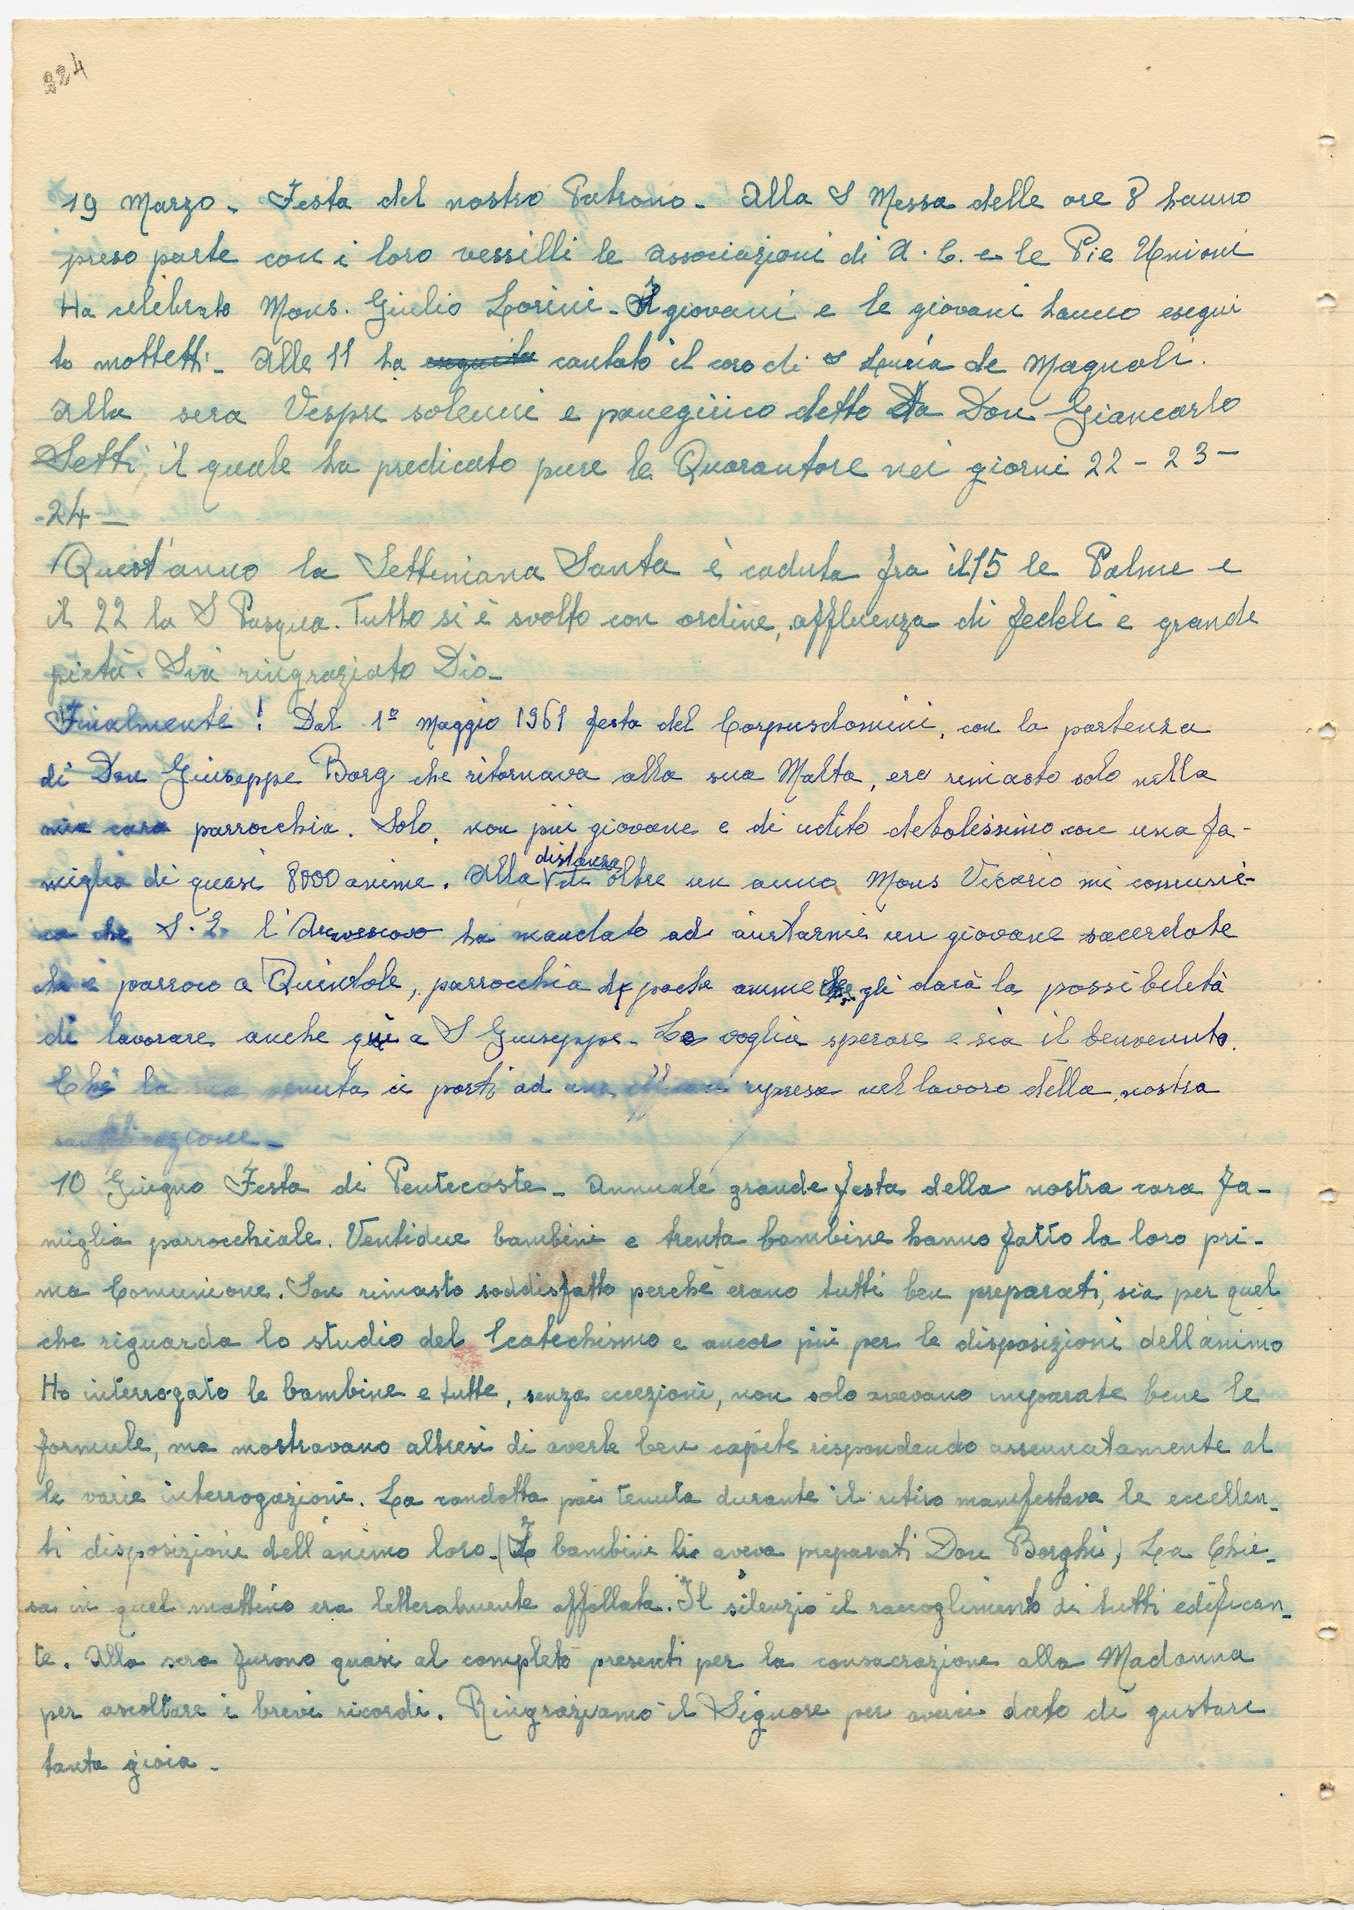 224
19 Marzo - Festa del nostro Patrono - Alla S Messa delle ore 8 hanno
preso parte con i loro vessilli le Associazioni di A. C. e le Pie Unioni
Ha celebrato Mons. Giulio Lorini - I giovani e le giovani hanno esegui
to mottetti - Alle 11 ha eseguito cantato il coro di S Lucia de Magnoli.
Alla sera Vespri solenni e panegirico detto da Don Giancarlo
Setti, il quale ha predicato pure le Quarantore nei giorni 22 - 23 -
- 24 -
Quest'anno la Settimana Santa è caduta fra il 15 le Palme e
il 22 la S Pasqua. Tutto si è svolto con ordine, affluenza di fedeli e grande
pietà. Sia ringraziato Dio -
Finalmente! Dal 1º Maggio 1961 festa del Corpusdomini, con la partenza
di Don Giuseppe Borg che ritornava alla sua Malta, ero rimasto solo nella
mia cara parrocchia. Solo, non più giovane e di udito debolissimo con una fa-
miglia di quasi 8000 anime. Alla distanza di oltre un anno Mons Vicario mi comuni-
ca che S. E. l'Arcivescovo ha mandato ad aiutarmi un giovane sacerdote
che è parroco a Quintole, parrocchia di poche anime che gli darà la possibilità
di lavorare anche qui a S Giuseppe - Lo voglio sperare e sia il benvenuto.
Che la sua venuta ci porti ad una ripresa nel lavoro della nostra
santificazione -
10 Giugno Festa di Pentecoste - Annuale grande festa della nostra cara fa-
miglia parrocchiale. Ventidue bambini e trenta bambine hanno fatto la loro pri-
ma Comunione. Son rimasto soddisfatto perchè erano tutti ben preparati, sia per quel
che riguarda lo studio del catechismo e ancor più per le disposizioni dell'animo
Ho interrogato le bambine e tutte, senza eccezioni, non solo avevano imparate bene le
formule, ma mostravano altresì di averle ben capite rispondendo assennatamente al
le varie interrogazioni. La condotta poi tenuta durante il ritiro manifestava le eccellen-
ti disposizioni dell'animo loro - (I bambini li aveva preparati Don Borghi) La Chie-
sa in quel mattino era letteralmente affollata. Il silenzio il raccoglimento di tutti edifican-
te. Alla sera furono quasi al completo presenti per la consacrazione alla Madonna
per ascoltare i brevi ricordi. Ringraziamo il Signore per averci dato di gustare
tanta gioia -